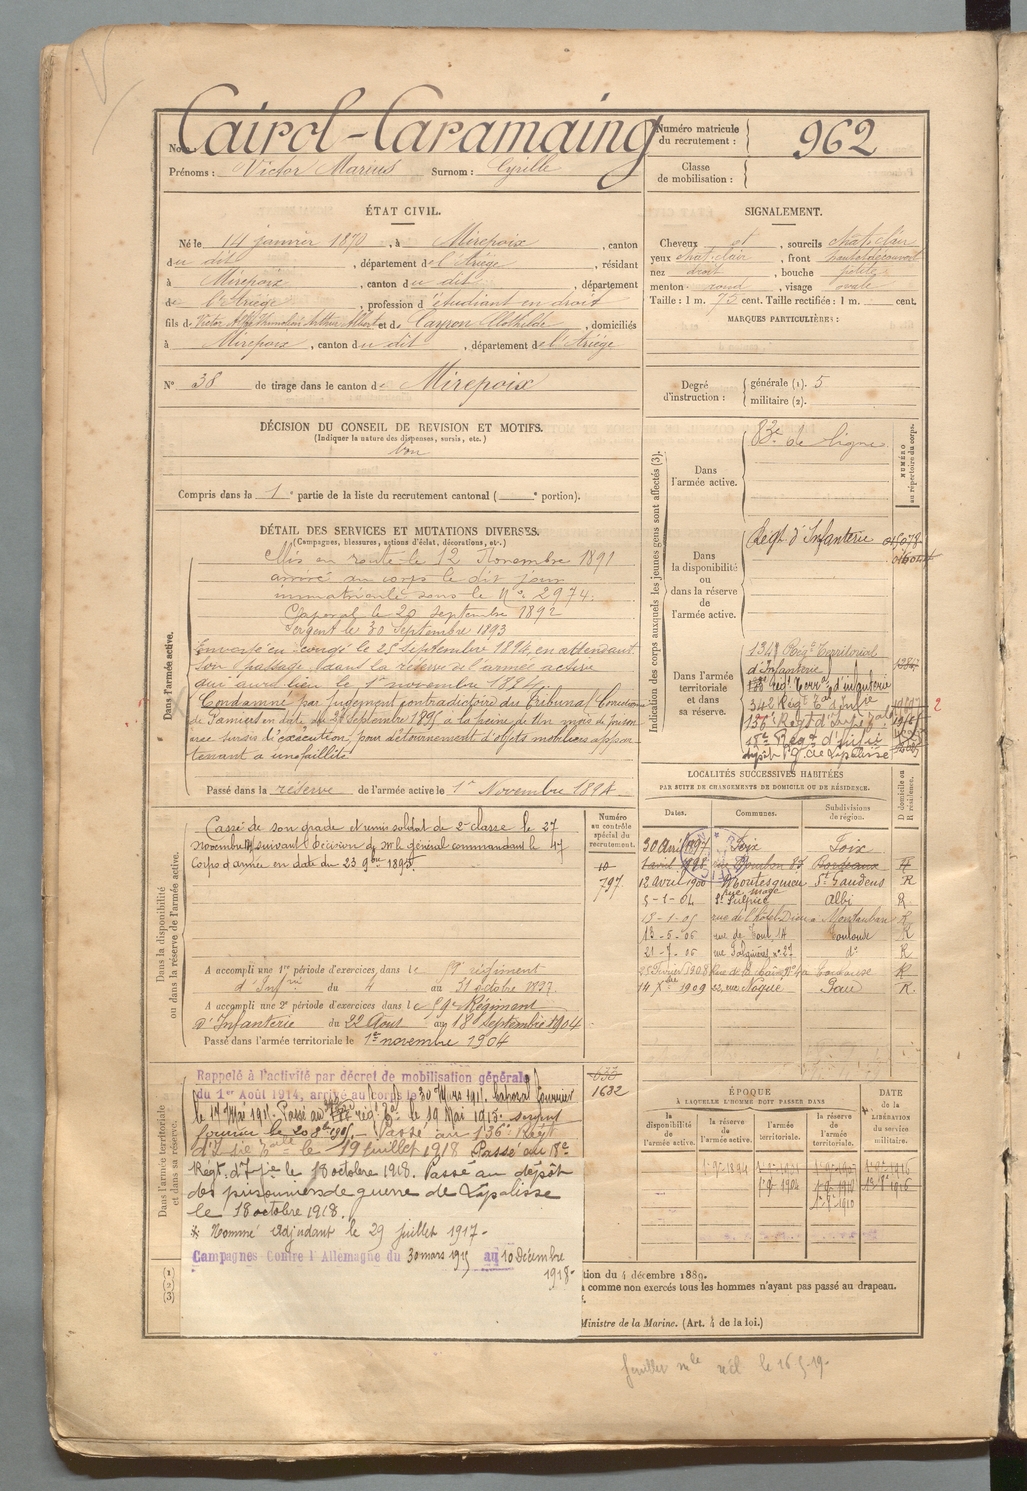 Nom Cairol-Caramaing
Numéro matricule du recrutement : 962
Prénoms : Victor Marius Surnom : Cyrille
Classe de mobilisation :
ÉTAT CIVIL.
Né le 14 janvier 1870, à Mirepoix, canton
du dit, département de l'Ariège, résidant
à Mirepoix, canton du dit, département
de l'Ariège, profession d'étudiant en droit
fils de Victor Arthur Albert et de Cayron Clothilde, domiciliés
à Mirepoix, canton du dit, département de l'Ariège
N° 38 de tirage dans le canton de Mirepoix
SIGNALEMENT.
Cheveux et, sourcils chat. clair
yeux chat. clair, front
nez droit, bouche petite
menton rond, visage ovale
Taille : 1 m. 75 cent. Taille rectifiée : 1 m. cent.
MARQUES PARTICULIÈRES :
Degré d'instruction : générale (1). 5
militaire (2).
DÉCISION DU CONSEIL DE REVISION ET MOTIFS.
(Indiquer la nature des dispenses, sursis, etc.)
bon
Compris dans la 1e partie de la liste du recrutement cantonal ( e portion).
DÉTAIL DES SERVICES ET MUTATIONS DIVERSES.
(Campagnes, blessures, actions d'éclat, décorations, etc.)
Dans l'armée active.
Mis en route le 12 Novembre 1891
arrivé au corps le dit jour
immatriculé sous le N° 2974.
Caporal le 20 septembre 1892
Sergent le 30 Septembre 1893
Envoyé en congé le 25 septembre 1894, en attendant
son passage dans la réserve de l'armée active
qui aura lieu le 1er novembre 1894.
Condamné par jugement contradictoire du Tribunal
de Pamiers en date du septembre 1895 à la peine de Un mois de prison
avec sursis d'exécution, pour détournement d'objets mobiliers appar-
tenant à une faillite
Passé dans la réserve de l'armée active le 1er Novembre 1894.
Dans la disponibilité ou dans la réserve de l'armée active.
Cassé de son grade et remis soldat de 2e classe le 27
Novembre suivant décision de Mr le général commandant le 17
Corps d'armée en date du 23 9bre 1895.
Numéro au contrôle spécial du recrutement.
10
797.
A accompli une 1re période d'exercices dans le 59e régiment
d'Infrie du 4 au 31 octobre 1897.
A accompli une 2e période d'exercices dans le 59e Régiment
d'Infanterie du 22 Août au 18 Septembre 1904
Passé dans l'armée territoriale le 1er novembre 1904
Dans l'armée territoriale et dans sa réserve.
1632
Rappelé à l'activité par décret de mobilisation générale
du 1er Août 1914, arrivé au corps le 30 Mars 1915. Caporal fourrier
le 17 Mai 1915. Passé au régt le 19 Mai 1915. sergent
fourrier le 20 8bre 1915. Passé au 136e Régt
d'Infie le 19 juillet 1918 Passé au 18e
Régt. d'Infie le 18 octobre 1918. Passé au dépôt
des prisonniers de guerre de Lapalisse
le 18 octobre 1918.
* Nommé Adjudant le 29 juillet 1917.
Campagnes Contre l'Allemagne du 30 mars 1915 au 10 Décembre
1918.
(1)
(2)
(3)
Indication des corps auxquels les jeunes gens sont affectés (3).
NUMÉRO au répertoire du corps.
Dans l'armée active. 83e de Ligne
Dans la disponibilité ou dans la réserve de l'armée active. Régt d'Infanterie
Dans l'armée territoriale et dans sa réserve.
134e Régt Territorial
d'Infanterie
régt Terral d'infanterie
342 Régt d'Infie
136e Régt d'Infie
Régt d'Infie
dépôt P.G. de Lapalisse
2
LOCALITÉS SUCCESSIVES HABITÉES
PAR SUITE DE CHANGEMENTS DE DOMICILE OU DE RÉSIDENCE.
Dates. Communes. Subdivisions de région. D domicile ou R résidence.
30 1897 Foix Foix
1 avril 1898 Bordeaux
12 avril 1900 Montesquieu St Gaudens R
5-1-04 St Sulpice Albi R
rue de l'hôtel Dieu Montauban R
rue de 14 Toulouse R
21-7-06 rue n° 27 d° R
1908 Toulouse R
14 Xbre 1909 22, rue Nogué Pau R
ÉPOQUE
À LAQUELLE L'HOMME DOIT PASSER DANS
la disponibilité de l'armée active.
la réserve de l'armée active.
l'armée territoriale.
la réserve de l'armée territoriale.
DATE de la LIBÉRATION du service militaire.
tion du 4 décembre 1889.
comme non exercés tous les hommes n'ayant pas passé au drapeau.
Ministre de la Marine. (Art. 4 de la loi.)
le 16-5-19